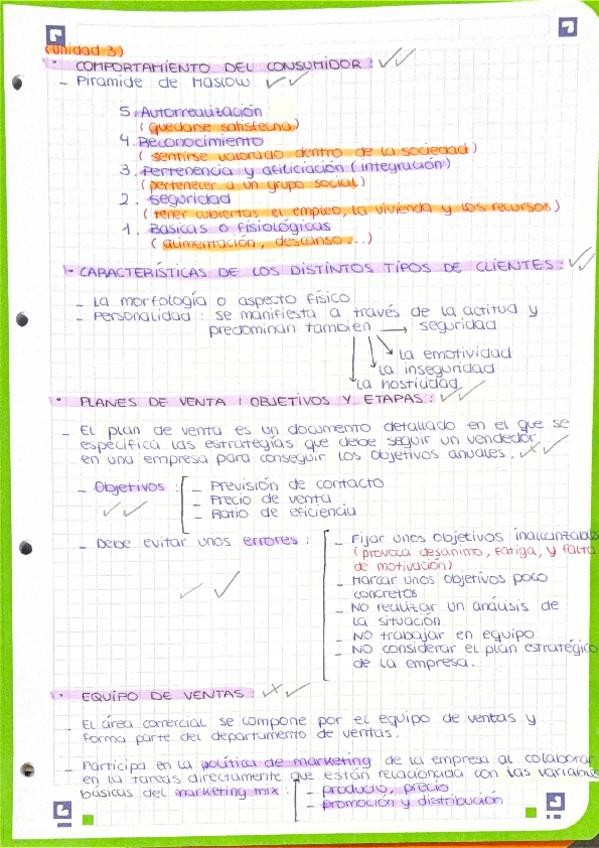 (Unidad 3)
· COMPORTAMIENTO DEL CONSUMIDOR:
- Piramide de Maslow
5. Autorrealización
(quedarse satisfecha)
4. Reconocimiento
(sentirse valorado dentro de la sociedad)
3. Pertenencia y afiliciación (integración)
(pertenecer a un grupo social)
2. Seguridad
(tener cubiertas el empleo, la vivienda y los recursos)
1. Basicas o fisiológicas
(alimentación, descanso...)
- CARACTERÍSTICAS DE LOS DISTINTOS TIPOS DE CLIENTES:
- La morfología o aspecto físico
- Personalidad: se manifiesta a través de la actitud y
predominan tambien → seguridad
la emotividad
la inseguridad
la hostilidad
· PLANES DE VENTA: OBJETIVOS Y ETAPAS:
- El plan de venta es un documento detallado en el que se
especifica las estrategias que debe seguir un vendedor
en una empresa para conseguir los objetivos anuales.
- Objetivos: - Previsión de contacto
- Precio de venta
- Ratio de eficiencia
- Debe evitar unos errores: - Fijar unos objetivos inalcanzables
(provoca desanimo, fatiga, y falta
de motivación)
- Marcar unos objetivos poco
concretos
- NO realizar un análisis de
la situación
- NO trabajar en equipo
- NO considerar el plan estratégico
de la empresa.
· EQUIPO DE VENTAS:
- El área comercial se compone por el equipo de ventas y
forma parte del departamento de ventas.
- Participa en la política de marketing de la empresa al colaborar
en la tareas directamente que están relacionada con las variables
básicas del marketing mix: - producto, precio
- promoción y distribución